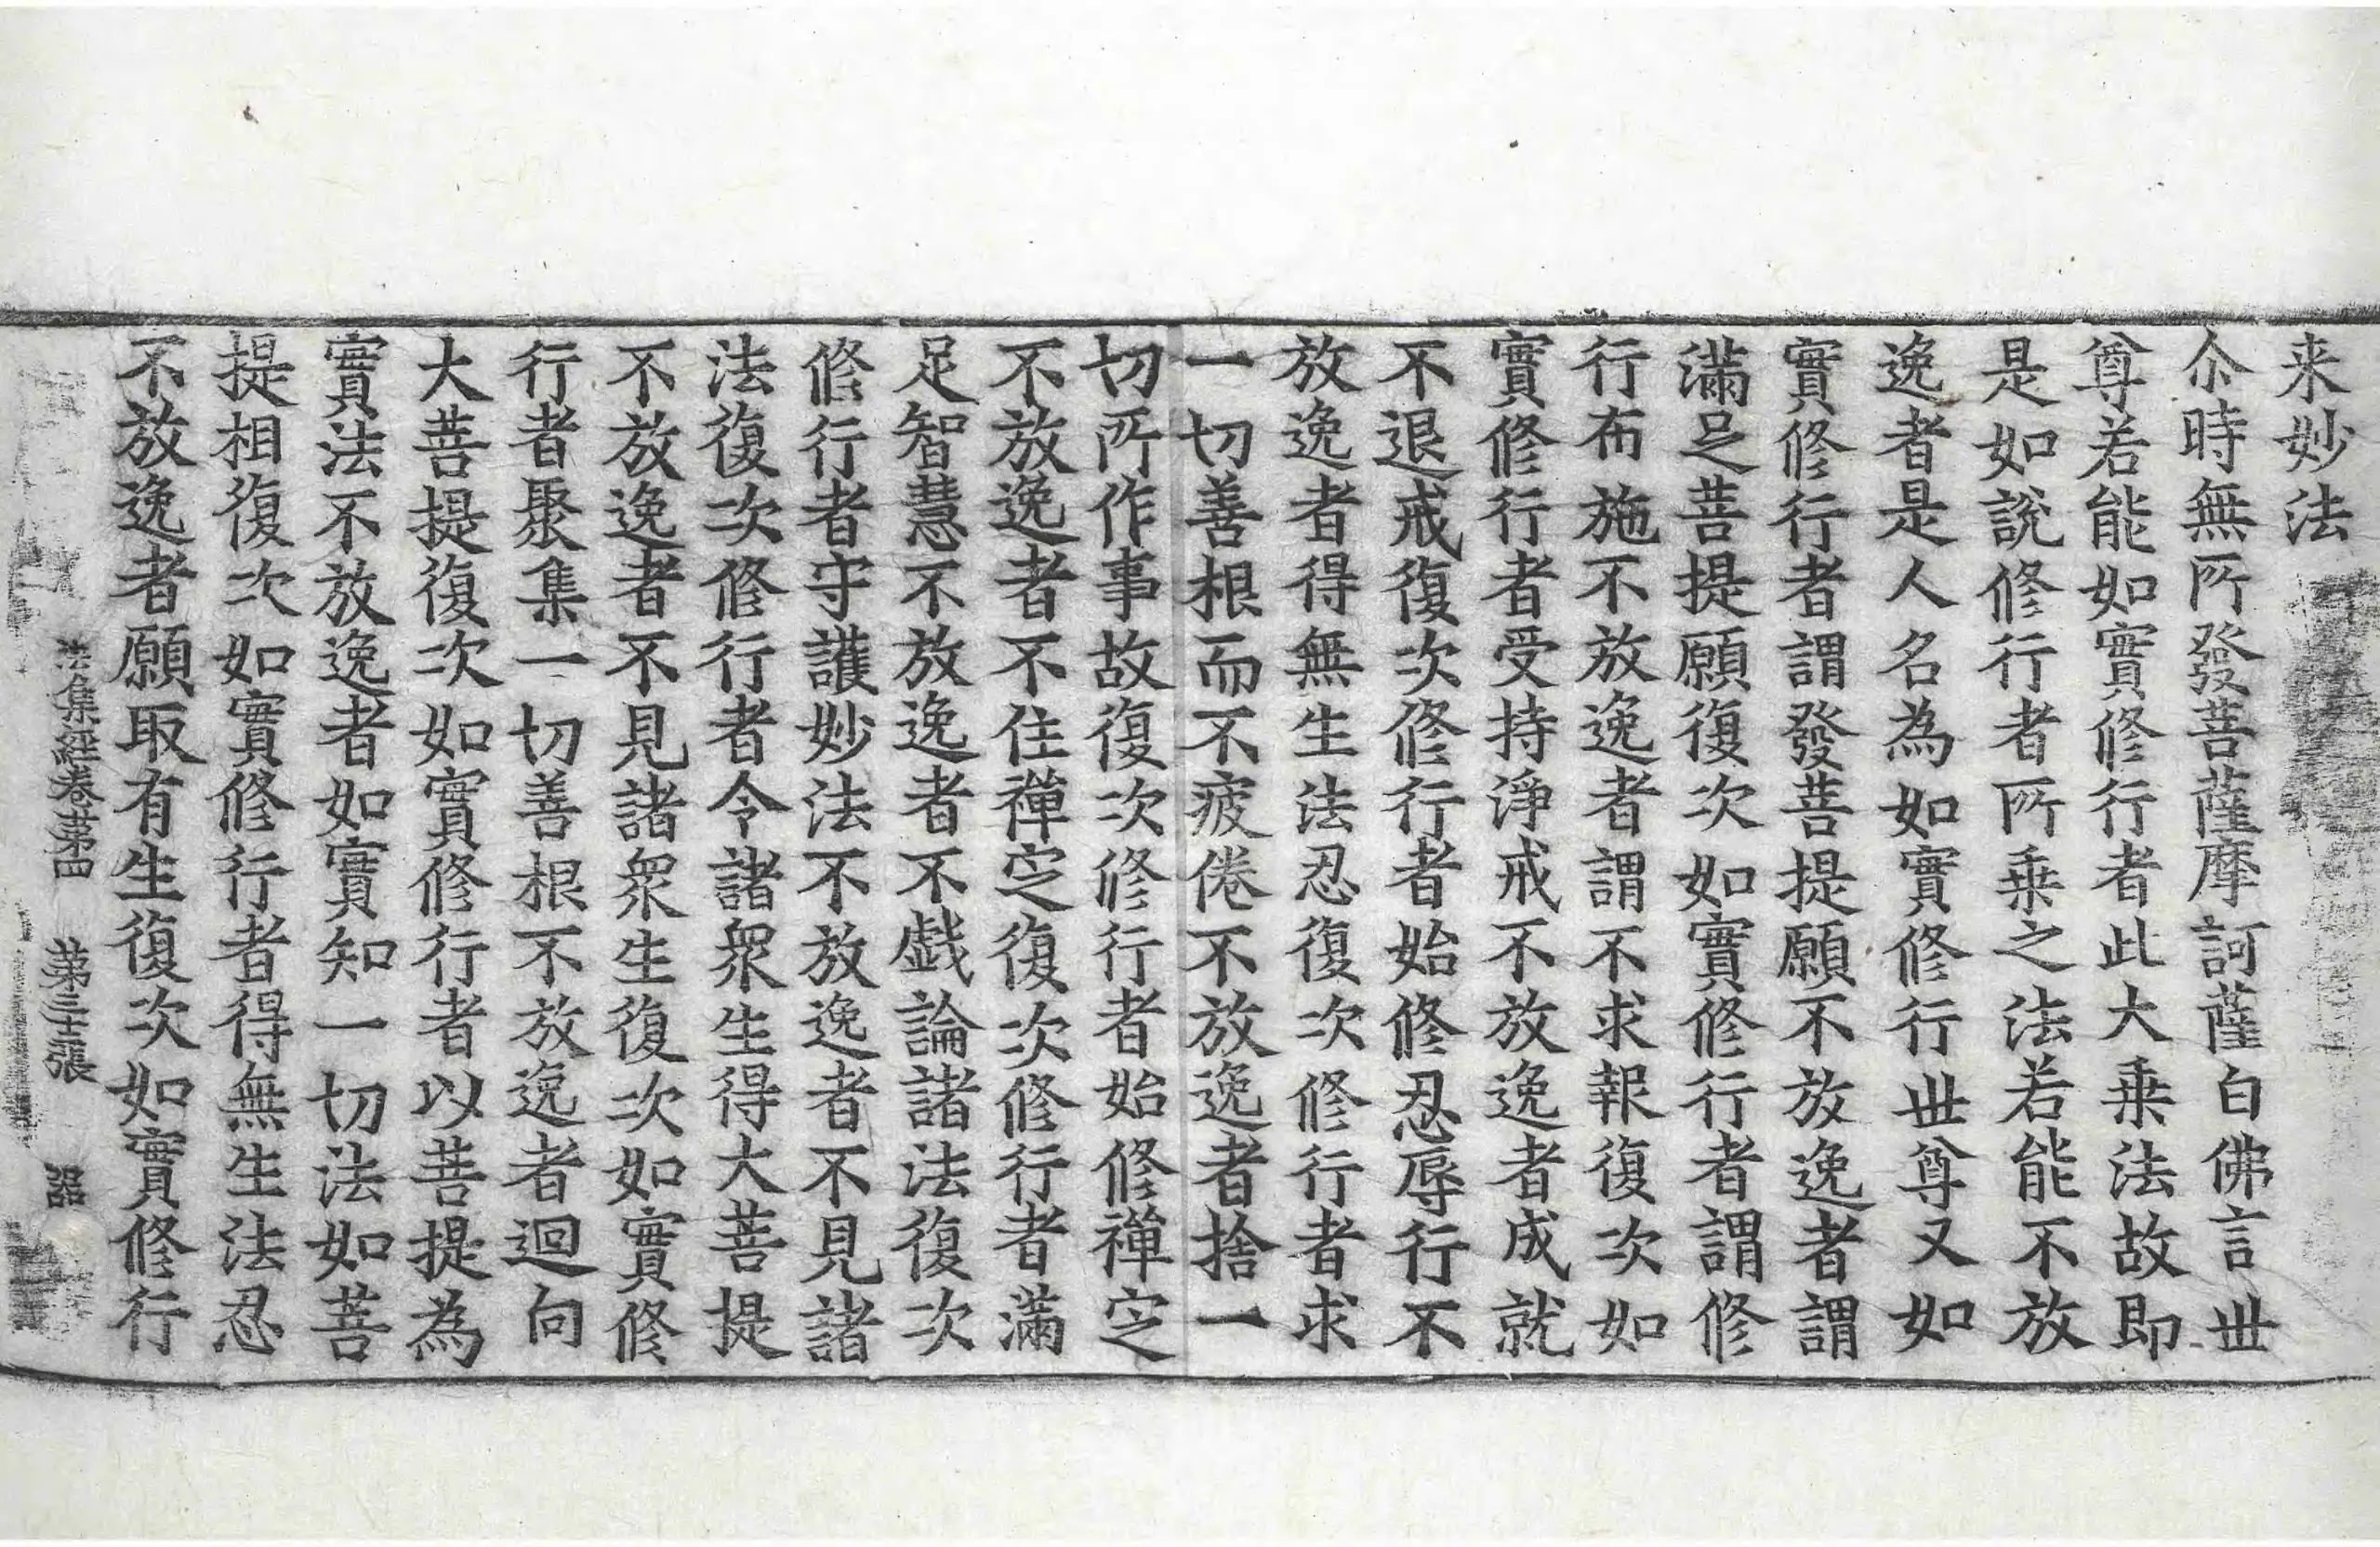 来妙法
尒時無所發菩薩摩訶薩白佛言世
尊若能如實修行者此大乗法故即
是如說修行者所乗之法若能不放
逸者是人名為如實修行世尊又如
實修行者謂發菩提願不放逸者謂
滿足菩提願復次如實修行者謂修
行布施不放逸者謂不求報復次如
實修行者受持淨戒不放逸者成就
不退戒復次修行者始修忍辱行不
放逸者得無生法忍復次修行者求
一切善根而不疲倦不放逸者捨一
切所作事故復次修行者始修禪定
不放逸者不住禪定復次修行者滿
足智慧不放逸者不戱論諸法復次
修行者守護妙法不放逸者不見諸
法復次修行者令諸衆生得大菩提
不放逸者不見諸衆生復次如實修
行者聚集一切善根不放逸者迴向
大菩提復次如實修行者以菩提為
實法不放逸者如實知一切法如菩
提相復次如實修行者得無生法忍
不放逸者願取有生復次如實修行
法集經卷第四 第三十張 詔